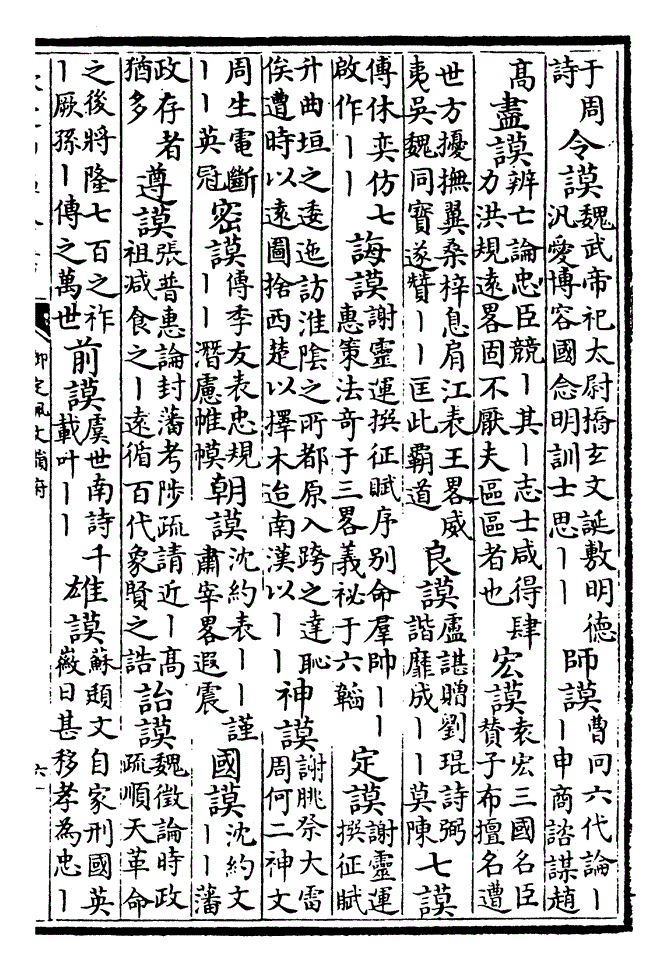 于周詩令謨魏武帝祀太尉橋玄文誕敷明德汎愛博容國念明訓士思丨丨師謨曹冏六代論丨丨申商諮謀趙
高盡謨辨亡論忠臣競丨其丨志士咸得肆力洪規遠畧固不厭夫區區者也宏謨袁宏三國名臣贊子布擅名遭
世方擾撫翼桑梓息肩江表王畧威夷吳魏同寶遂贊丨丨匡此霸道良謨盧諶贈劉琨詩弼諧靡成丨丨莫陳七謨
傅休奕仿七啟作丨丨誨謨謝靈運撰征賦序别命羣帥丨丨惠策法奇于三畧義祕于六韜定謨謝靈運撰征賦
升曲垣之逶迤訪淮陰之所都原入跨之達恥俟遭時以遠圖捨西楚以擇木迨南漢以丨丨神謨謝朓祭大雷周何二神文
周生電斷丨丨英冠密謨傅季友表忠規丨丨潛慮帷幙朝謨沈約表丨丨謹肅宰畧遐震國謨沈約文丨丨藩
政存者猶多遵謨張普惠論封藩考陟疏請近丨高祖减食之丨遠循百代象賢之誥詒謨魏徵論時政疏順天革命
之後將隆七百之祚丨厥孫丨傳之萬世前謨虞世南詩千載叶丨丨雄謨蘇頲文自家刑國英嶶日甚移孝為忠丨
御定佩文韻府